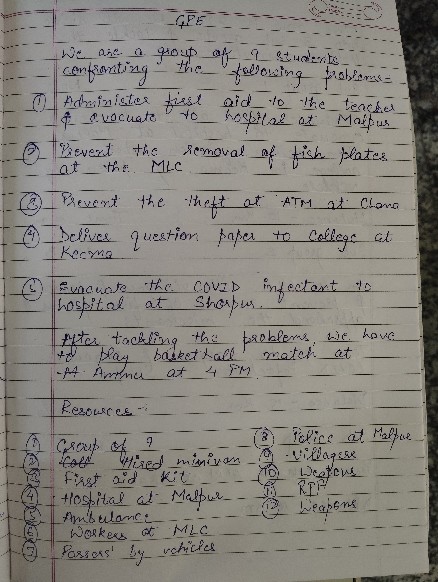 GPE
We are a group of 9 students
confronting the following problems-
① Administer first aid to the teacher
& evacuate to hospital at Malpur
② Prevent the removal of fish plates
at the MLC
③ Prevent the theft at ATM at Chana
④ Deliver question paper to College at
Keema
⑤ Evacuate the COVID infectant to
hospital at Shorpur.
After tackling the problems, we have
to play basketball match at
at 4 PM
Resources :-
① Group of 9
② Hired minivan
③ First aid Kit
④ Hospital at Malpur
⑤ Ambulance
⑥ Workers at MLC
⑦ Passers' by vehicles
⑧ Police at Malpur
⑨ Villagers
⑩ Weapons
⑪
⑫ Weapons